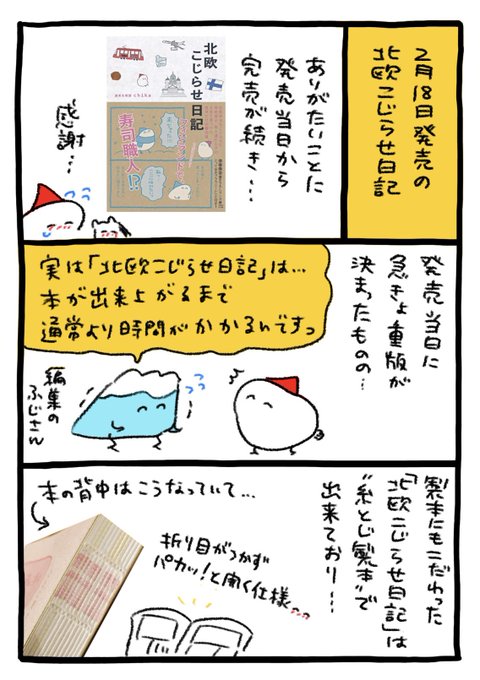 2月18日発売の
北欧こじらせ日記
ありがたいことに
発売当日から
完売が続き…
北欧
こじらせ
日記
寿司職人!?
感謝…
発売当日に
急きょ重版が
決まったものの…
実は「北欧こじらせ日記」は…
本が出来上がるまで
通常より時間がかかるんですっ
編集の
ふじさん
製本にもこだわった
「北欧こじらせ日記」は
"糸とじ製本"で
出来ており…
本の背中はこうなっていて…
折り目がつかず
パカッ!と開く仕様